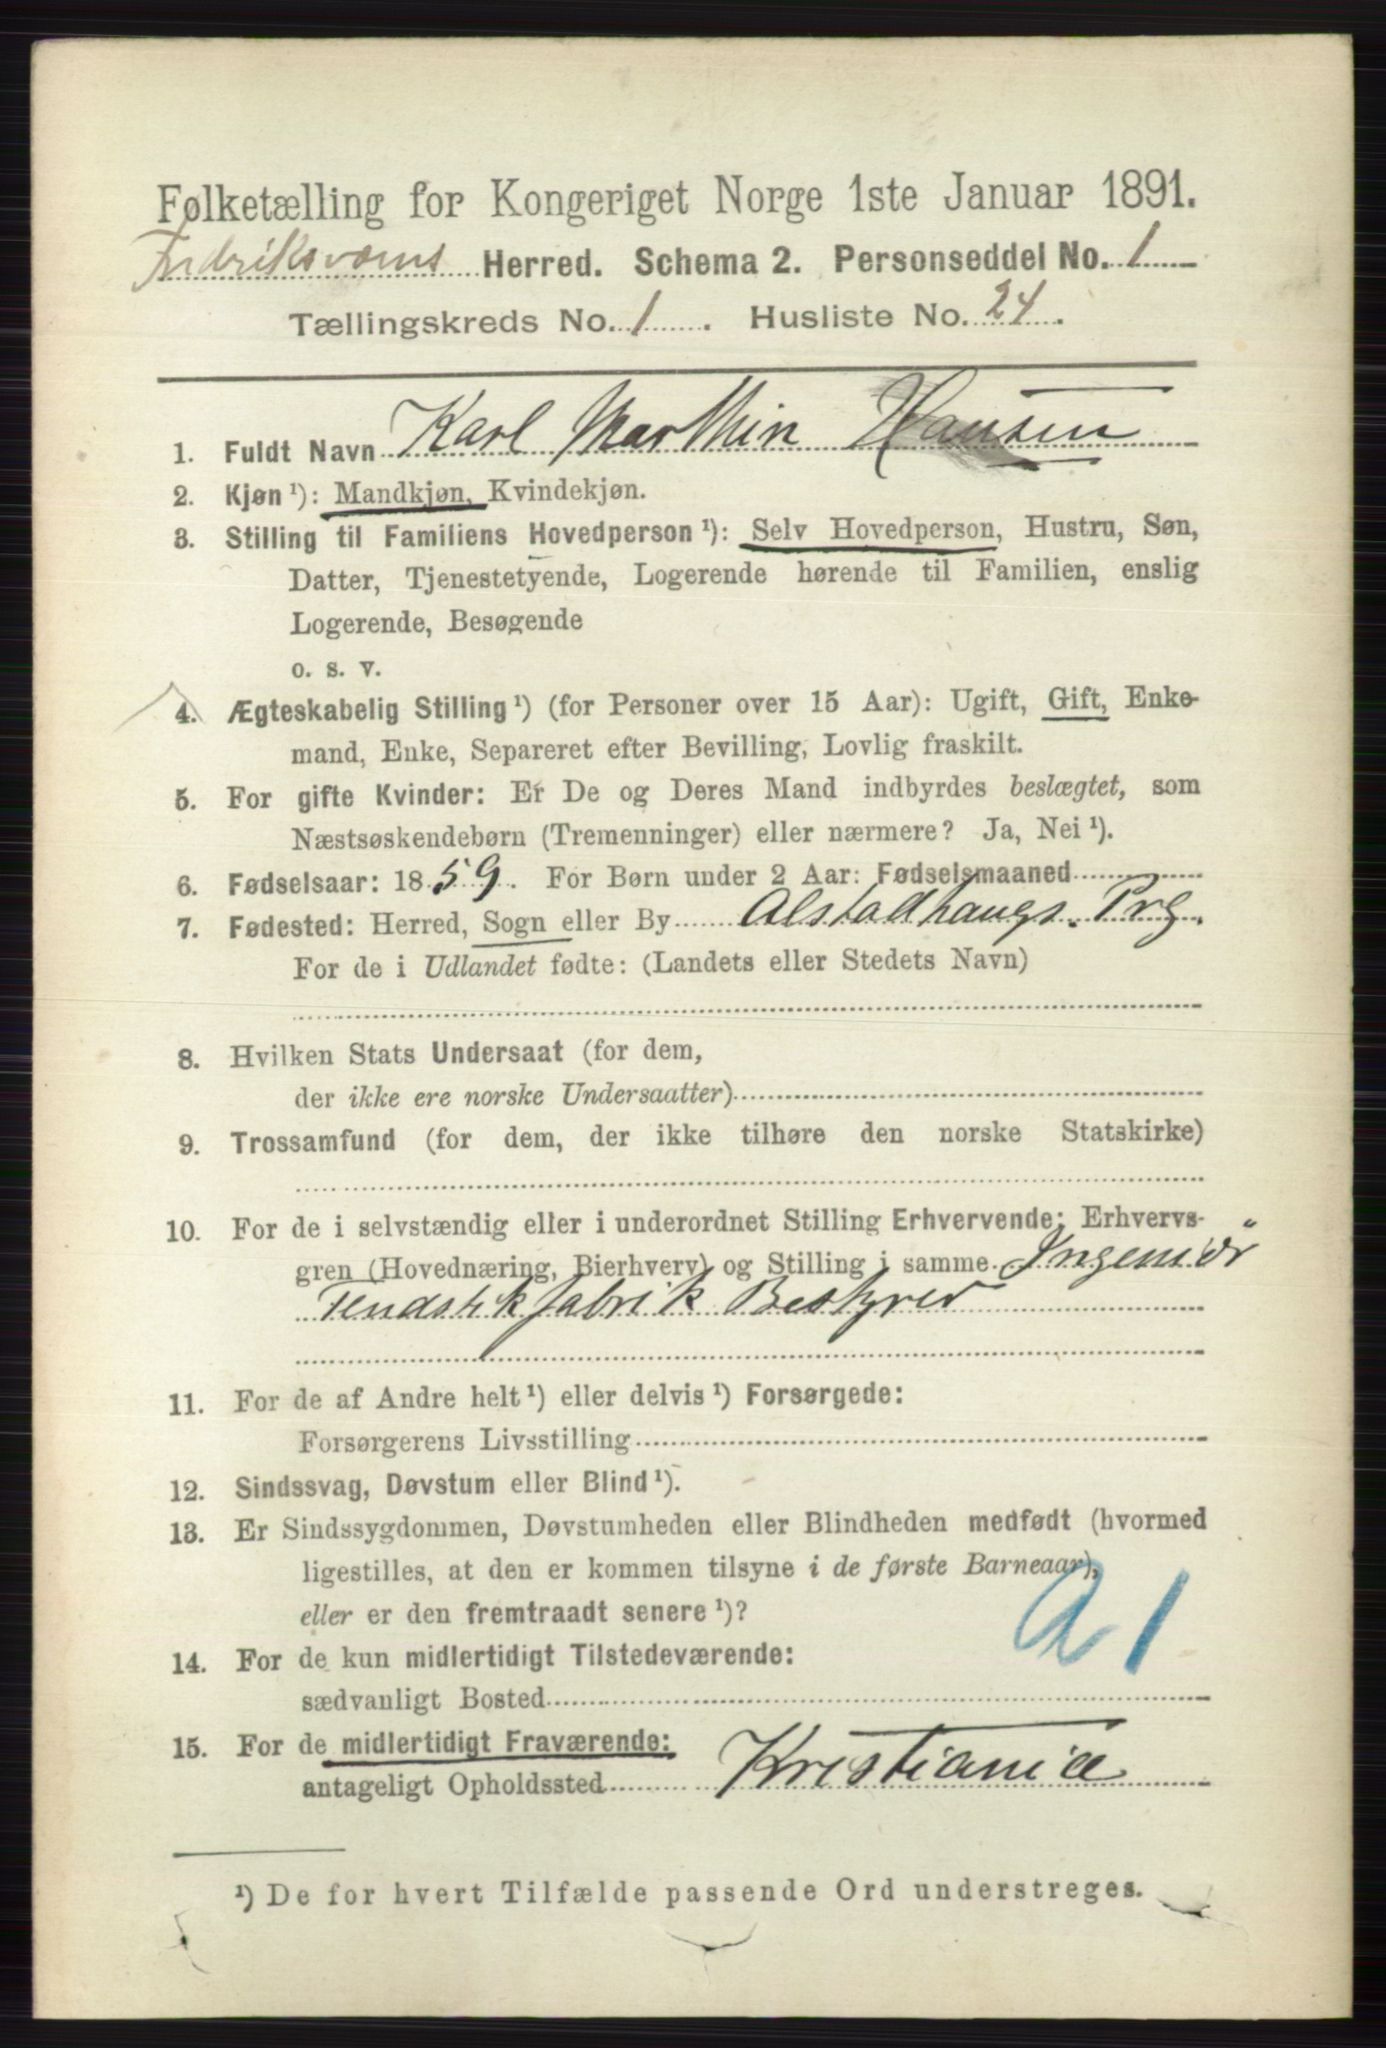 Folketælling for Kongeriget Norge 1ste Januar 1891.
Fredriksværns Herred. Schema 2. Personseddel No. 1
Tællingskreds No. 1. Husliste No. 24.
1. Fuldt Navn Karl Marthin Hansen
2. Kjøn ¹): Mandkjøn, Kvindekjøn.
3. Stilling til Familiens Hovedperson ¹): Selv Hovedperson, Hustru, Søn,
Datter, Tjenestetyende, Logerende hørende til Familien, enslig
Logerende, Besøgende
o. s. v.
4. Ægteskabelig Stilling ¹) (for Personer over 15 Aar): Ugift, Gift, Enke-
mand, Enke, Separeret efter Bevilling, Lovlig fraskilt.
5. For gifte Kvinder: Er De og Deres Mand indbyrdes beslægtet, som
Næstsøskendebørn (Tremenninger) eller nærmere? Ja, Nei ¹).
6. Fødselsaar: 1859. For Børn under 2 Aar: Fødselsmaaned
7. Fødested: Herred, Sogn eller By Alstadhaugs. Prg.
For de i Udlandet fødte: (Landets eller Stedets Navn)
8. Hvilken Stats Undersaat (for dem,
der ikke ere norske Undersaatter)
9. Trossamfund (for dem, der ikke tilhøre den norske Statskirke)
10. For de i selvstændig eller i underordnet Stilling Erhvervende: Erhvervs-
gren (Hovednæring, Bierhverv) og Stilling i samme. Ingeniør
Tendstikfabrik Bestyrer
11. For de af Andre helt ¹) eller delvis ¹) Forsørgede:
Forsørgerens Livsstilling
12. Sindssvag, Døvstum eller Blind ¹).
13. Er Sindssygdommen, Døvstumheden eller Blindheden medfødt (hvormed
ligestilles, at den er kommen tilsyne i de første Barneaar),
eller er den fremtraadt senere ¹)?
a 1
14. For de kun midlertidigt Tilstedeværende:
sædvanligt Bosted
15. For de midlertidigt Fraværende:
antageligt Opholdssted Kristiania
¹) De for hvert Tilfælde passende Ord understreges.